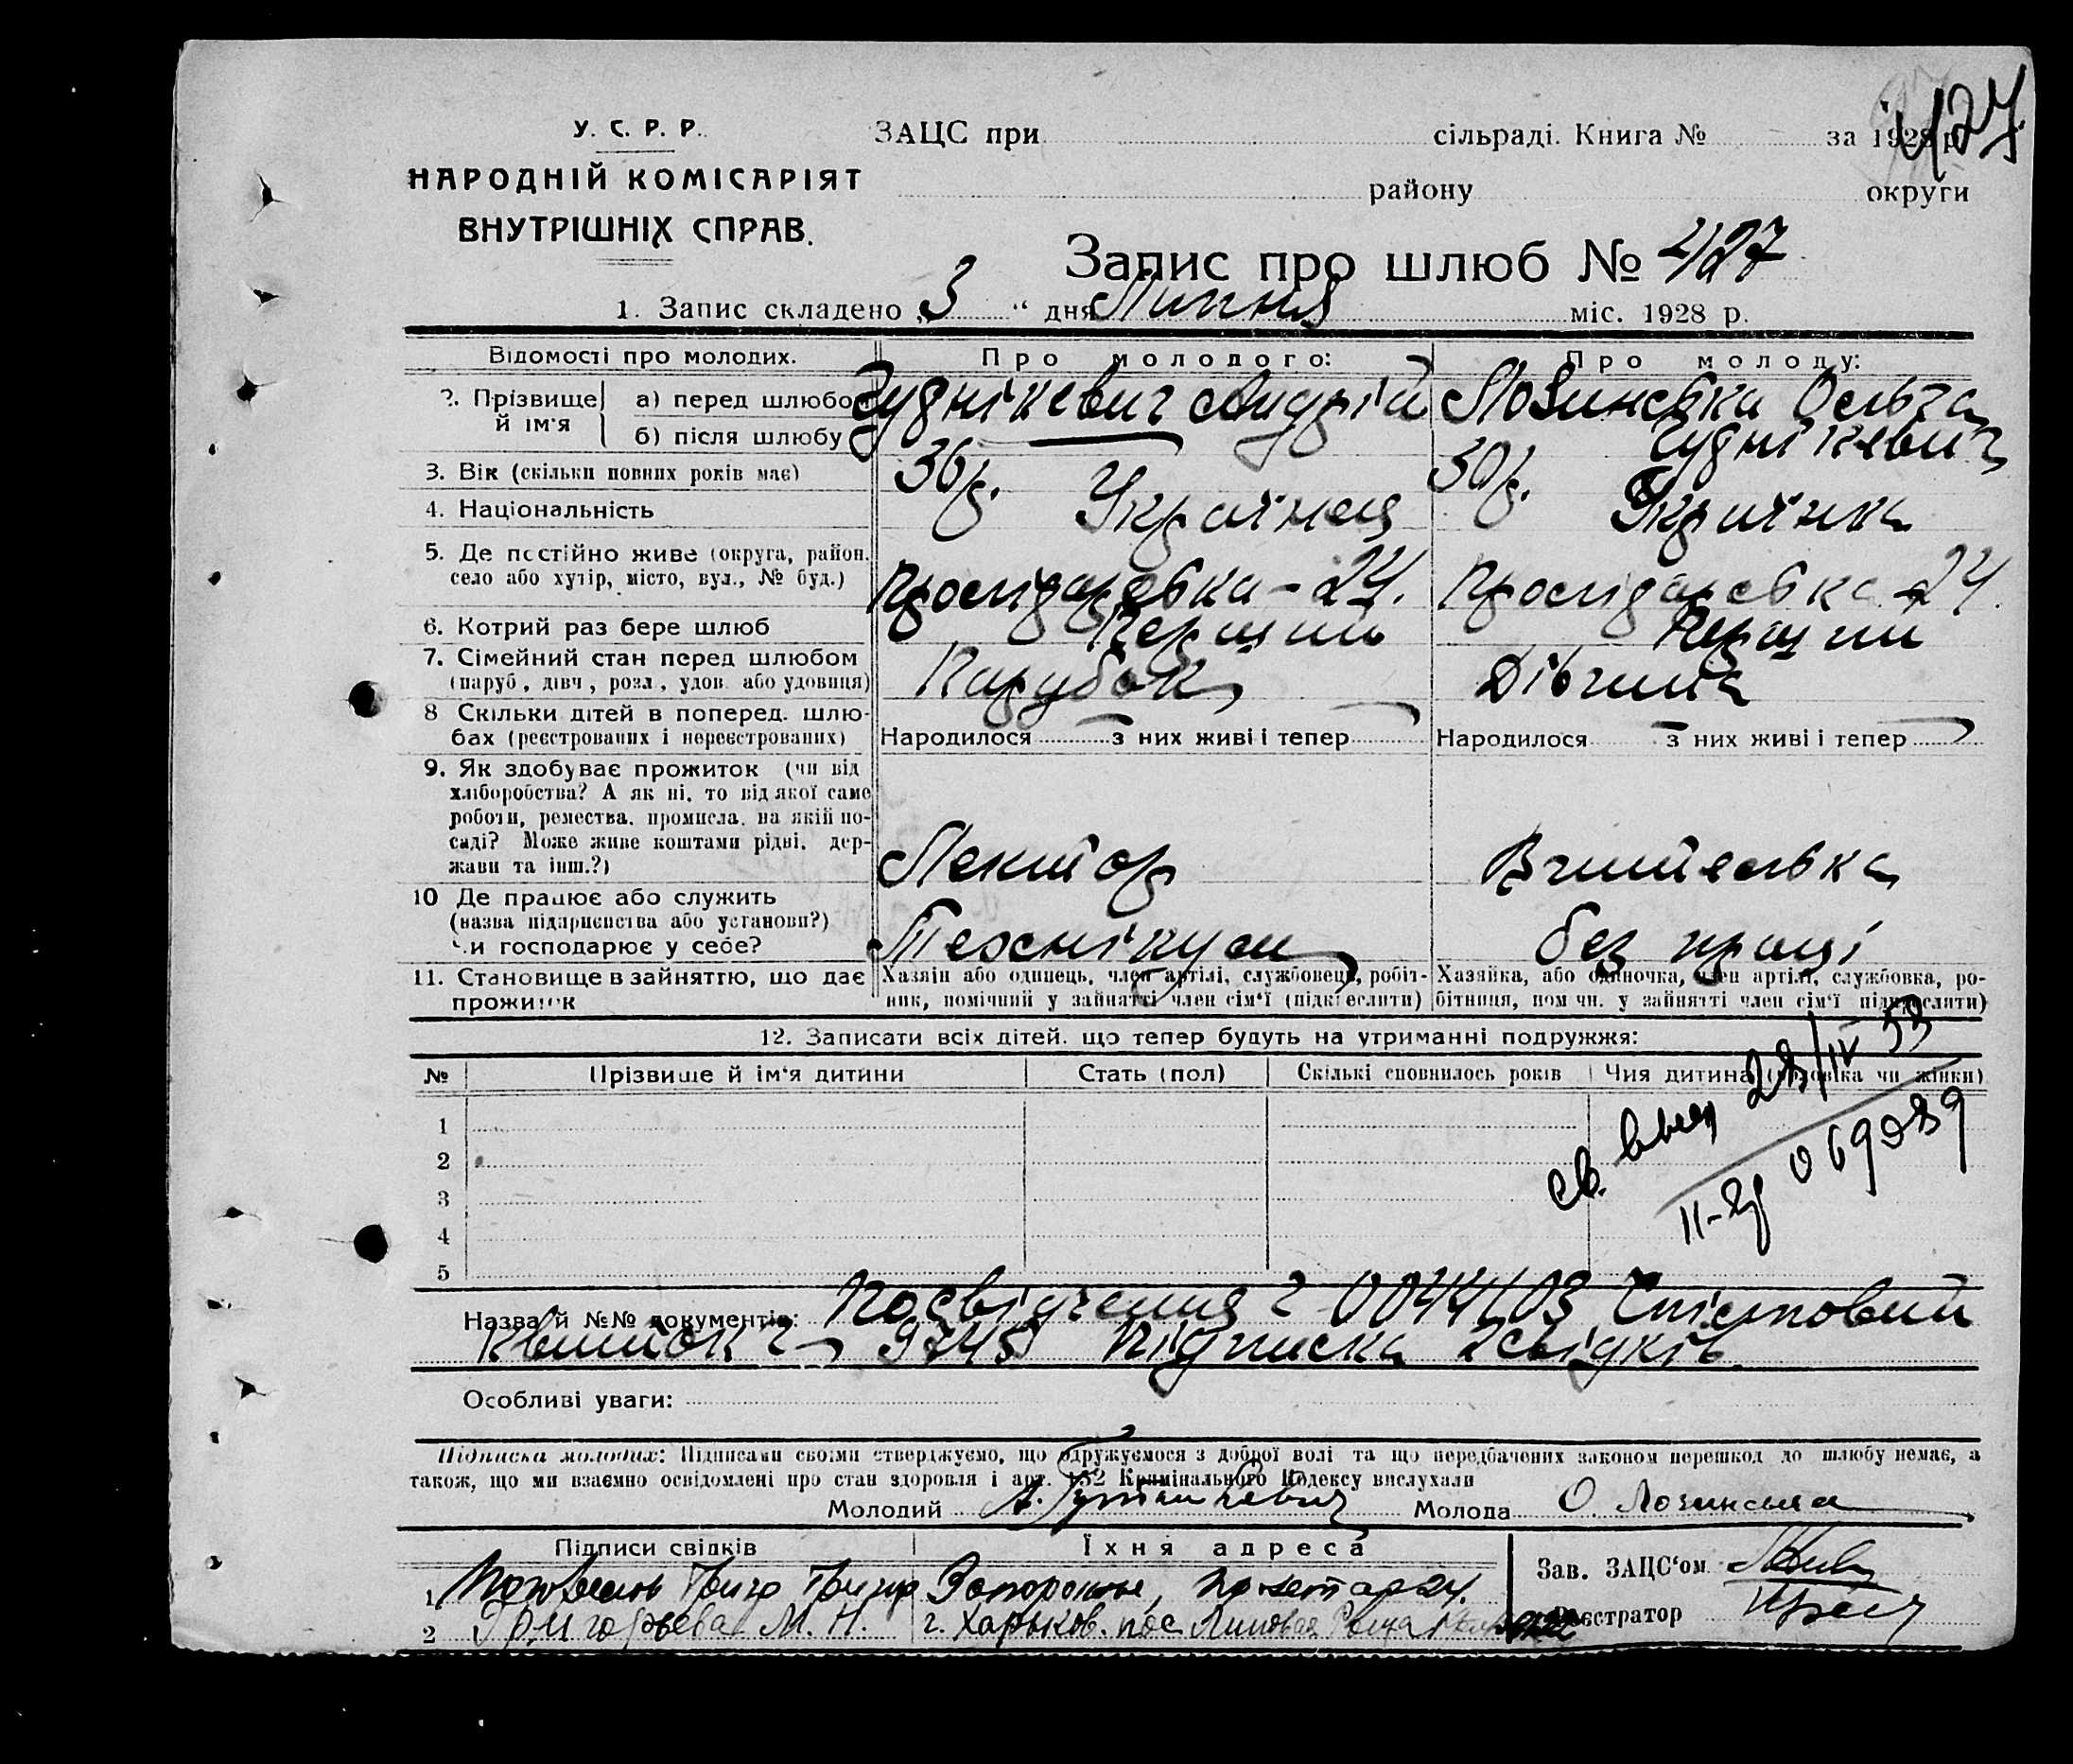 427
У. С. Р. Р.
НАРОДНІЙ КОМІСАРІЯТ
ВНУТРІШНІХ СПРАВ.
ЗАЦС при сільраді. Книга № за 1928 р.
району округи
Запис про шлюб № 427
1. Запис складено „3“ дня Липня міс. 1928 р.
Відомості про молодих. Про молодого: Про молоду:
2. Прізвище й ім'я а) перед шлюбом Гудніκевич Андрій Лозинська Ольга
б) після шлюбу Гуднікевич
3. Вік (скільки повних років має) 36 р. 30 р.
4. Національність Українец Українка
5. Де постійно живе (округа, район. село або хутір, місто, вул., № буд.) Пролідарська - 24. Пролідарська - 24.
6. Котрий раз бере шлюб Перший Перший
7. Сімейний стан перед шлюбом (паруб, дівч, розл, удов або удовиця) Парубок Дівчина
8 Скільки дітей в поперед. шлюбах (реєстрованих і нереєстрованих) Народилося з них живі і тепер Народилося з них живі і тепер
9. Як здобуває прожиток (чи від хліборобства? А як ні, то від якої саме роботи, ремества, промисла, на якій посаді? Може живе коштами рідні, держави та інш.?) Лектор Вчителька
10 Де працює або служить (назва підприємства або установи?) Чи господарює у себе? Технікум без праці
11. Становище в зайняттю, що дає прожиток Хазяїн або одинець, член артілі, службовець, робітник, помічний у зайнятті член сім'ї (підкреслити) Хазяйка, або одиночка, член артілі, службовка, робітниця, помічн. у зайнятті член сім'ї підкреслити)
12. Записати всіх дітей, що тепер будуть на утриманні подружжя:
№ Прізвище й ім'я дитини Стать (пол) Скількі сповнилось років Чия дитина (чоловіка чи жінки)
1
2
3
4
5
св. выд 28/IV 53
069989
Назва й №№ документів: Посвідчення Спістовий
Квиток 9745 Підписка 2 свідків.
Особливі уваги:
Підписка молодих: Підписами своїми стверджуємо, що одружуємося з доброї волі та що передбачених законом перешкод до шлюбу немає, а
також, що ми взаємно освідомлені про стан здоровля і арт. 152 Кримінального Кодексу вислухали
Молодий А. Гутникевич Молода О. Лозинська
Підписи свідків Їхня адреса Зав. ЗАЦС'ом
1 Запорожье, 24.
2 Григорьева М. Н. г. Харьков. пос. Липовая Роща Реєстратор